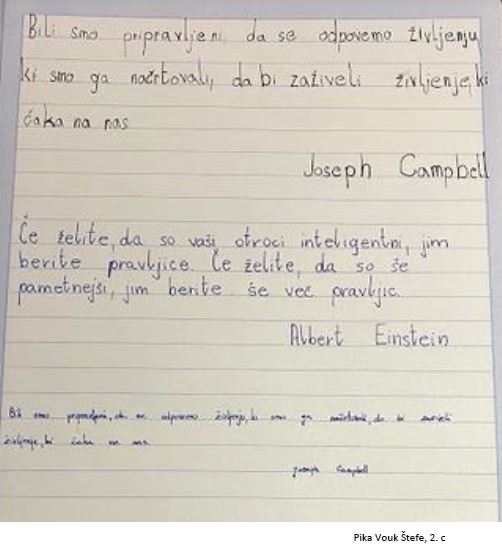 Bili smo pripravljeni, da se odpovemo življenju
ki smo ga načrtovali, da bi zaživeli življenje, ki
čaka na nas
Joseph Campbell
Če želite, da so vaši otroci inteligentni, jim
berite pravljice. Če želite, da so še
pametnejši, jim berite še več pravljic.
Albert Einstein
Bili smo pripravljeni, da se odpovemo življenju, ki smo ga načrtovali, da bi zaživeli
življenje, ki čaka na nas.
Joseph Campbell
Pika Vouk Štefe, 2. c